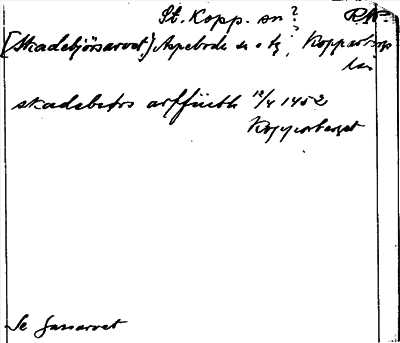 St. Kopp. sn? RA
[Skadebjörsarvet] Aspeboda sn o tg ?, Kopparbergs
län
skadebørs arffuith 12/4 1452
Kopporberget
Se Jansarvet